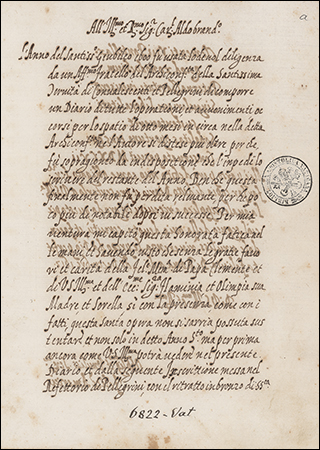 All' Ill.mo et R.mo Sig.r Car.l Aldobrand.o
L'Anno del Santiss.o Giubileo 1600 fu usato lodevol diligenza
da un Aff.mo fratello del Archiconf.ta della Santissima
Trinità di Convalescenti et Pelegrini de comporre
un Diario di tutte l'operationi et avvenimenti oc
corsi per lo spatio di otto mesi in circa nella detta
Archiconf.ta mentre l'Autore si distese più oltre per che
fu sopragionto da indispositione che l'impedì lo
scrivere del restante del Anno. Ben che questa
finalmente non fa perdita relevante per che po
co più de notabile dopoi vi successe. Per mia
ventura mi capitò questa honorata fatica ad
le mani, et havendo visto che stura le gratie favo
ri et carità della fel. Mem. di Papa Clemente et
de V.S. Ill.ma et dell' Ecc.me Sig.re Flaminia et Olimpia sua
Madre et Sorella sì con la presenza come con i
fatti, questa santa opera non si saria possuta sus
tentare et non solo in detto Anno S.to ma per prima
ancora come V.S. Ill.ma potrà veder nel presente
Diario et dalla seguente Inscrittione messa nel
Refettorio de Pelegrini, con il ritratto in bronzo di SS.tà
6822 - Vat
a